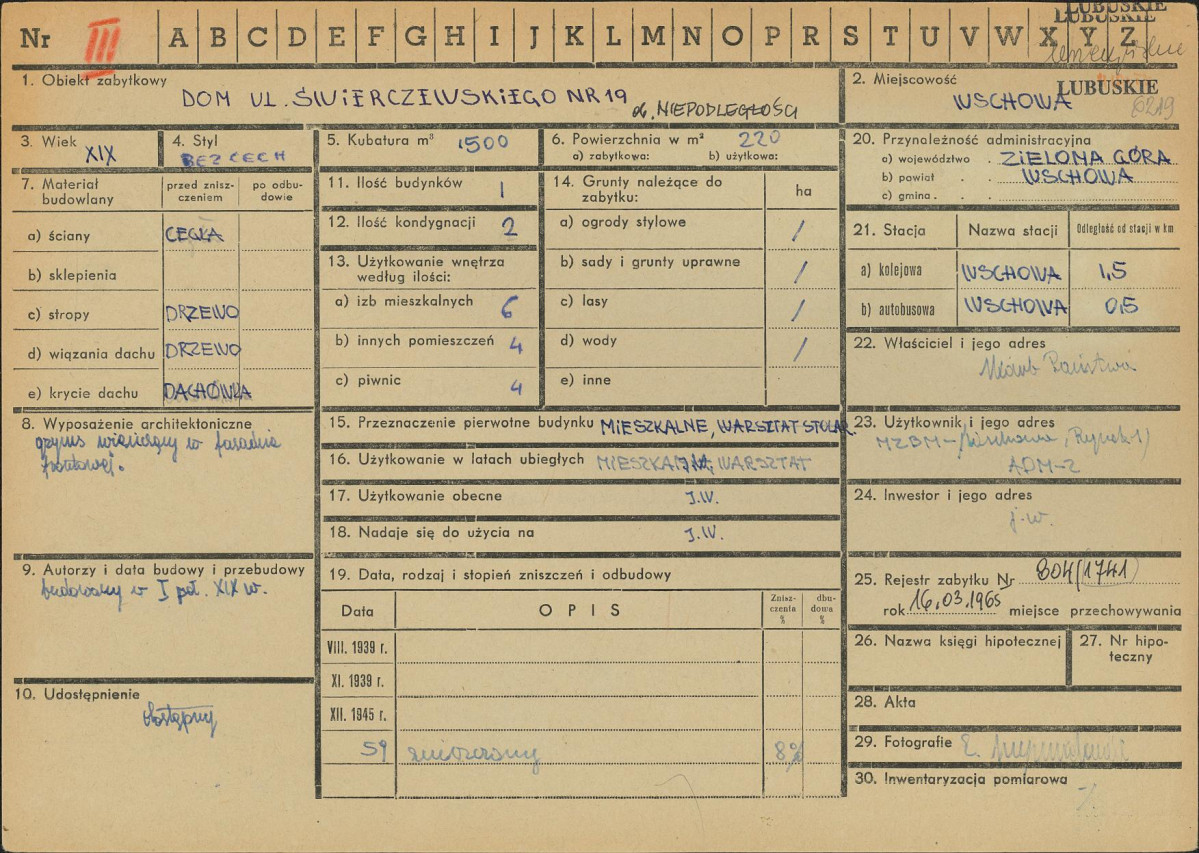 LUBUSKIE
LUBUSKIE
Nr III A B C D E F G H I J K L M N O P R S T U V W X Y Z
1. Obiekt zabytkowy
DOM UL. ŚWIERCZEWSKIEGO NR 19
NIEPODLEGŁOŚCI
2. Miejscowość
LUBUSKIE
WSCHOWA
6219
3. Wiek
XIX
4. Styl
BEZ CECH
5. Kubatura m³ 1500
6. Powierzchnia w m² 220
a) zabytkowa: b) użytkowa:
7. Materiał budowlany
przed znisz-
czeniem
po odbu-
dowie
a) ściany CEGŁA
b) sklepienia
c) stropy DRZEWO
d) wiązania dachu DRZEWO
e) krycie dachu DACHÓWKA
8. Wyposażenie architektoniczne
gzyms wieńczący w fasadzie
frontowej.
9. Autorzy i data budowy i przebudowy
budowany w I poł. XIX w.
10. Udostępnienie
dostępny
11. Ilość budynków 1
12. Ilość kondygnacji 2
13. Użytkowanie wnętrza
według ilości:
a) izb mieszkalnych 6
b) innych pomieszczeń 4
c) piwnic 4
14. Grunty należące do
zabytku:
ha
a) ogrody stylowe /
b) sady i grunty uprawne /
c) lasy /
d) wody /
e) inne
15. Przeznaczenie pierwotne budynku MIESZKALNE, WARSZTAT STOLAR.
16. Użytkowanie w latach ubiegłych WARSZTAT
17. Użytkowanie obecne J.W.
18. Nadaje się do użycia na J.W.
19. Data, rodzaj i stopień zniszczeń i odbudowy
Data OPIS
Znisz-
czenia
%
dbu-
dowa
%
VIII. 1939 r.
XI. 1939 r.
XII. 1945 r.
59 zniszczony 8%
20. Przynależność administracyjna
a) województwo ZIELONA GÓRA
b) powiat WSCHOWA
c) gmina
21. Stacja Nazwa stacji Odległość od stacji w km
a) kolejowa WSCHOWA 1,5
b) autobusowa WSCHOWA 0,5
22. Właściciel i jego adres
Skarb Państwa
23. Użytkownik i jego adres
MZBM - Wschowa (Rynek 1)
ADM-2
24. Inwestor i jego adres
j.w.
25. Rejestr zabytku Nr 804 (1741)
rok 16.03.1965 miejsce przechowywania
26. Nazwa księgi hipotecznej
27. Nr hipo-
teczny
28. Akta
29. Fotografie
30. Inwentaryzacja pomiarowa